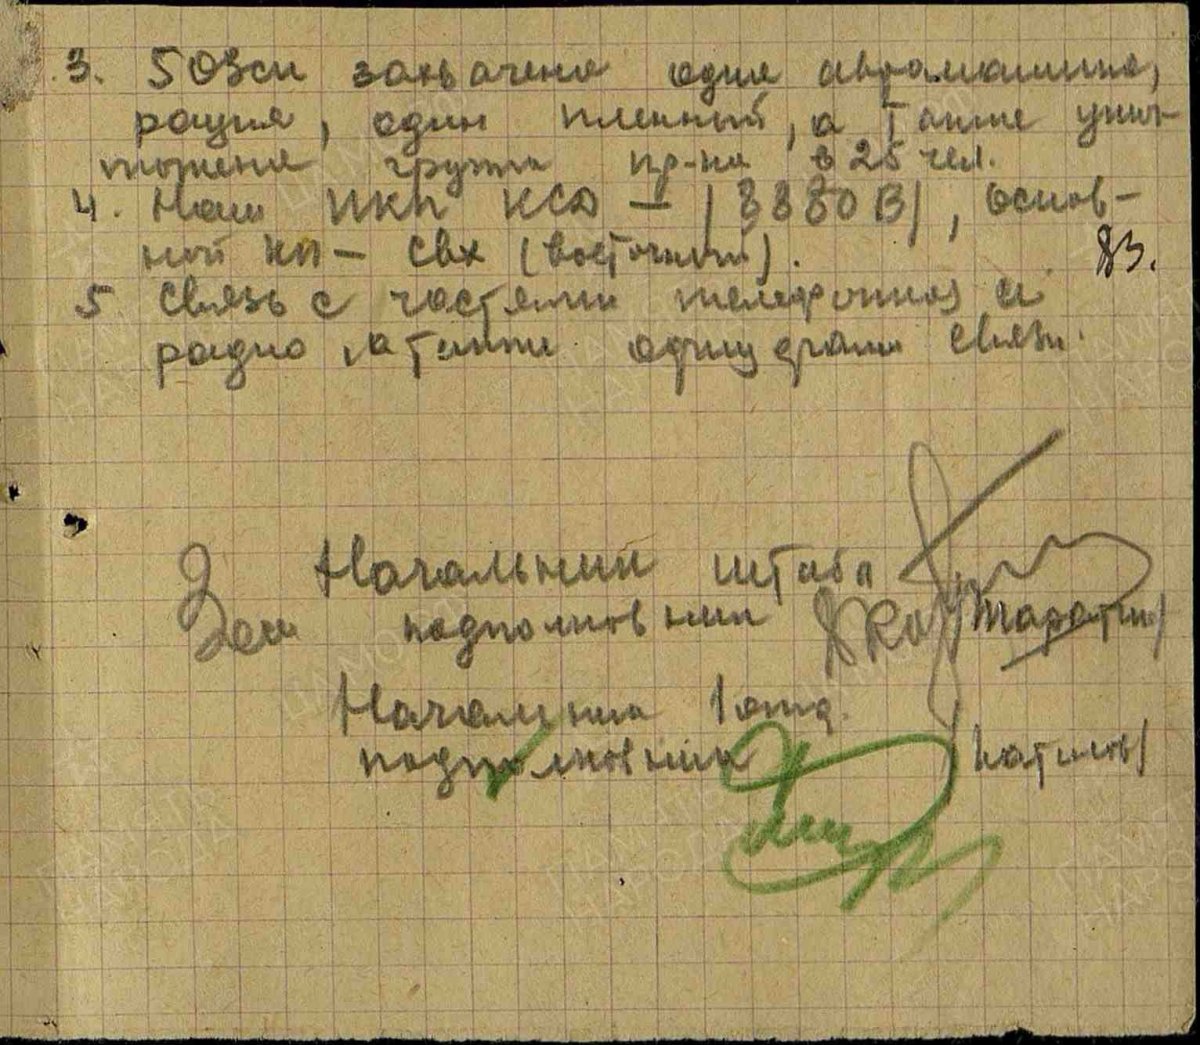 3. 50зсп захвачена одна автомашина,
рация, один пленный, а также унич-
тожена группа пр-ка в 25 чел.
4. Наш ПКП КСД — /3880 В/, основ-
ной КП — свх (восточный).
83.
5 Связь с частями телефонная и
радио, а также офицерами связи.
Начальник штаба
Зам подполковник
Начальник 1 отд.
подполковник /Катилов/